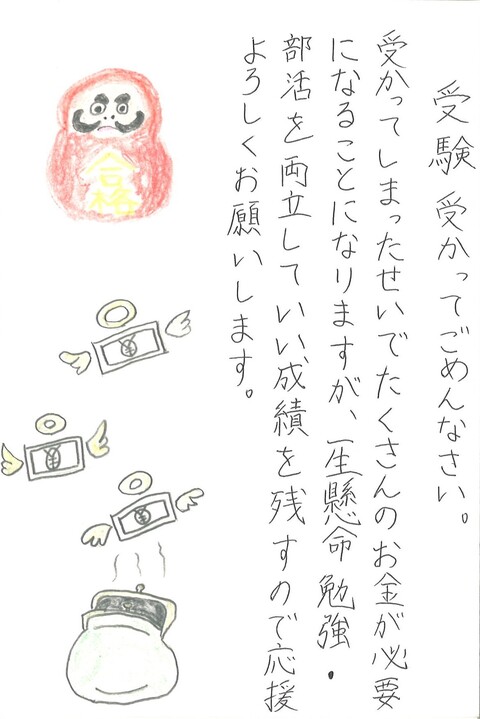 受験 受かってごめんなさい。
受かってしまったせいでたくさんのお金が必要
になることになりますが、一生懸命勉強・
部活を両立していい成績を残すので応援
よろしくお願いします。
合格
¥
¥
¥